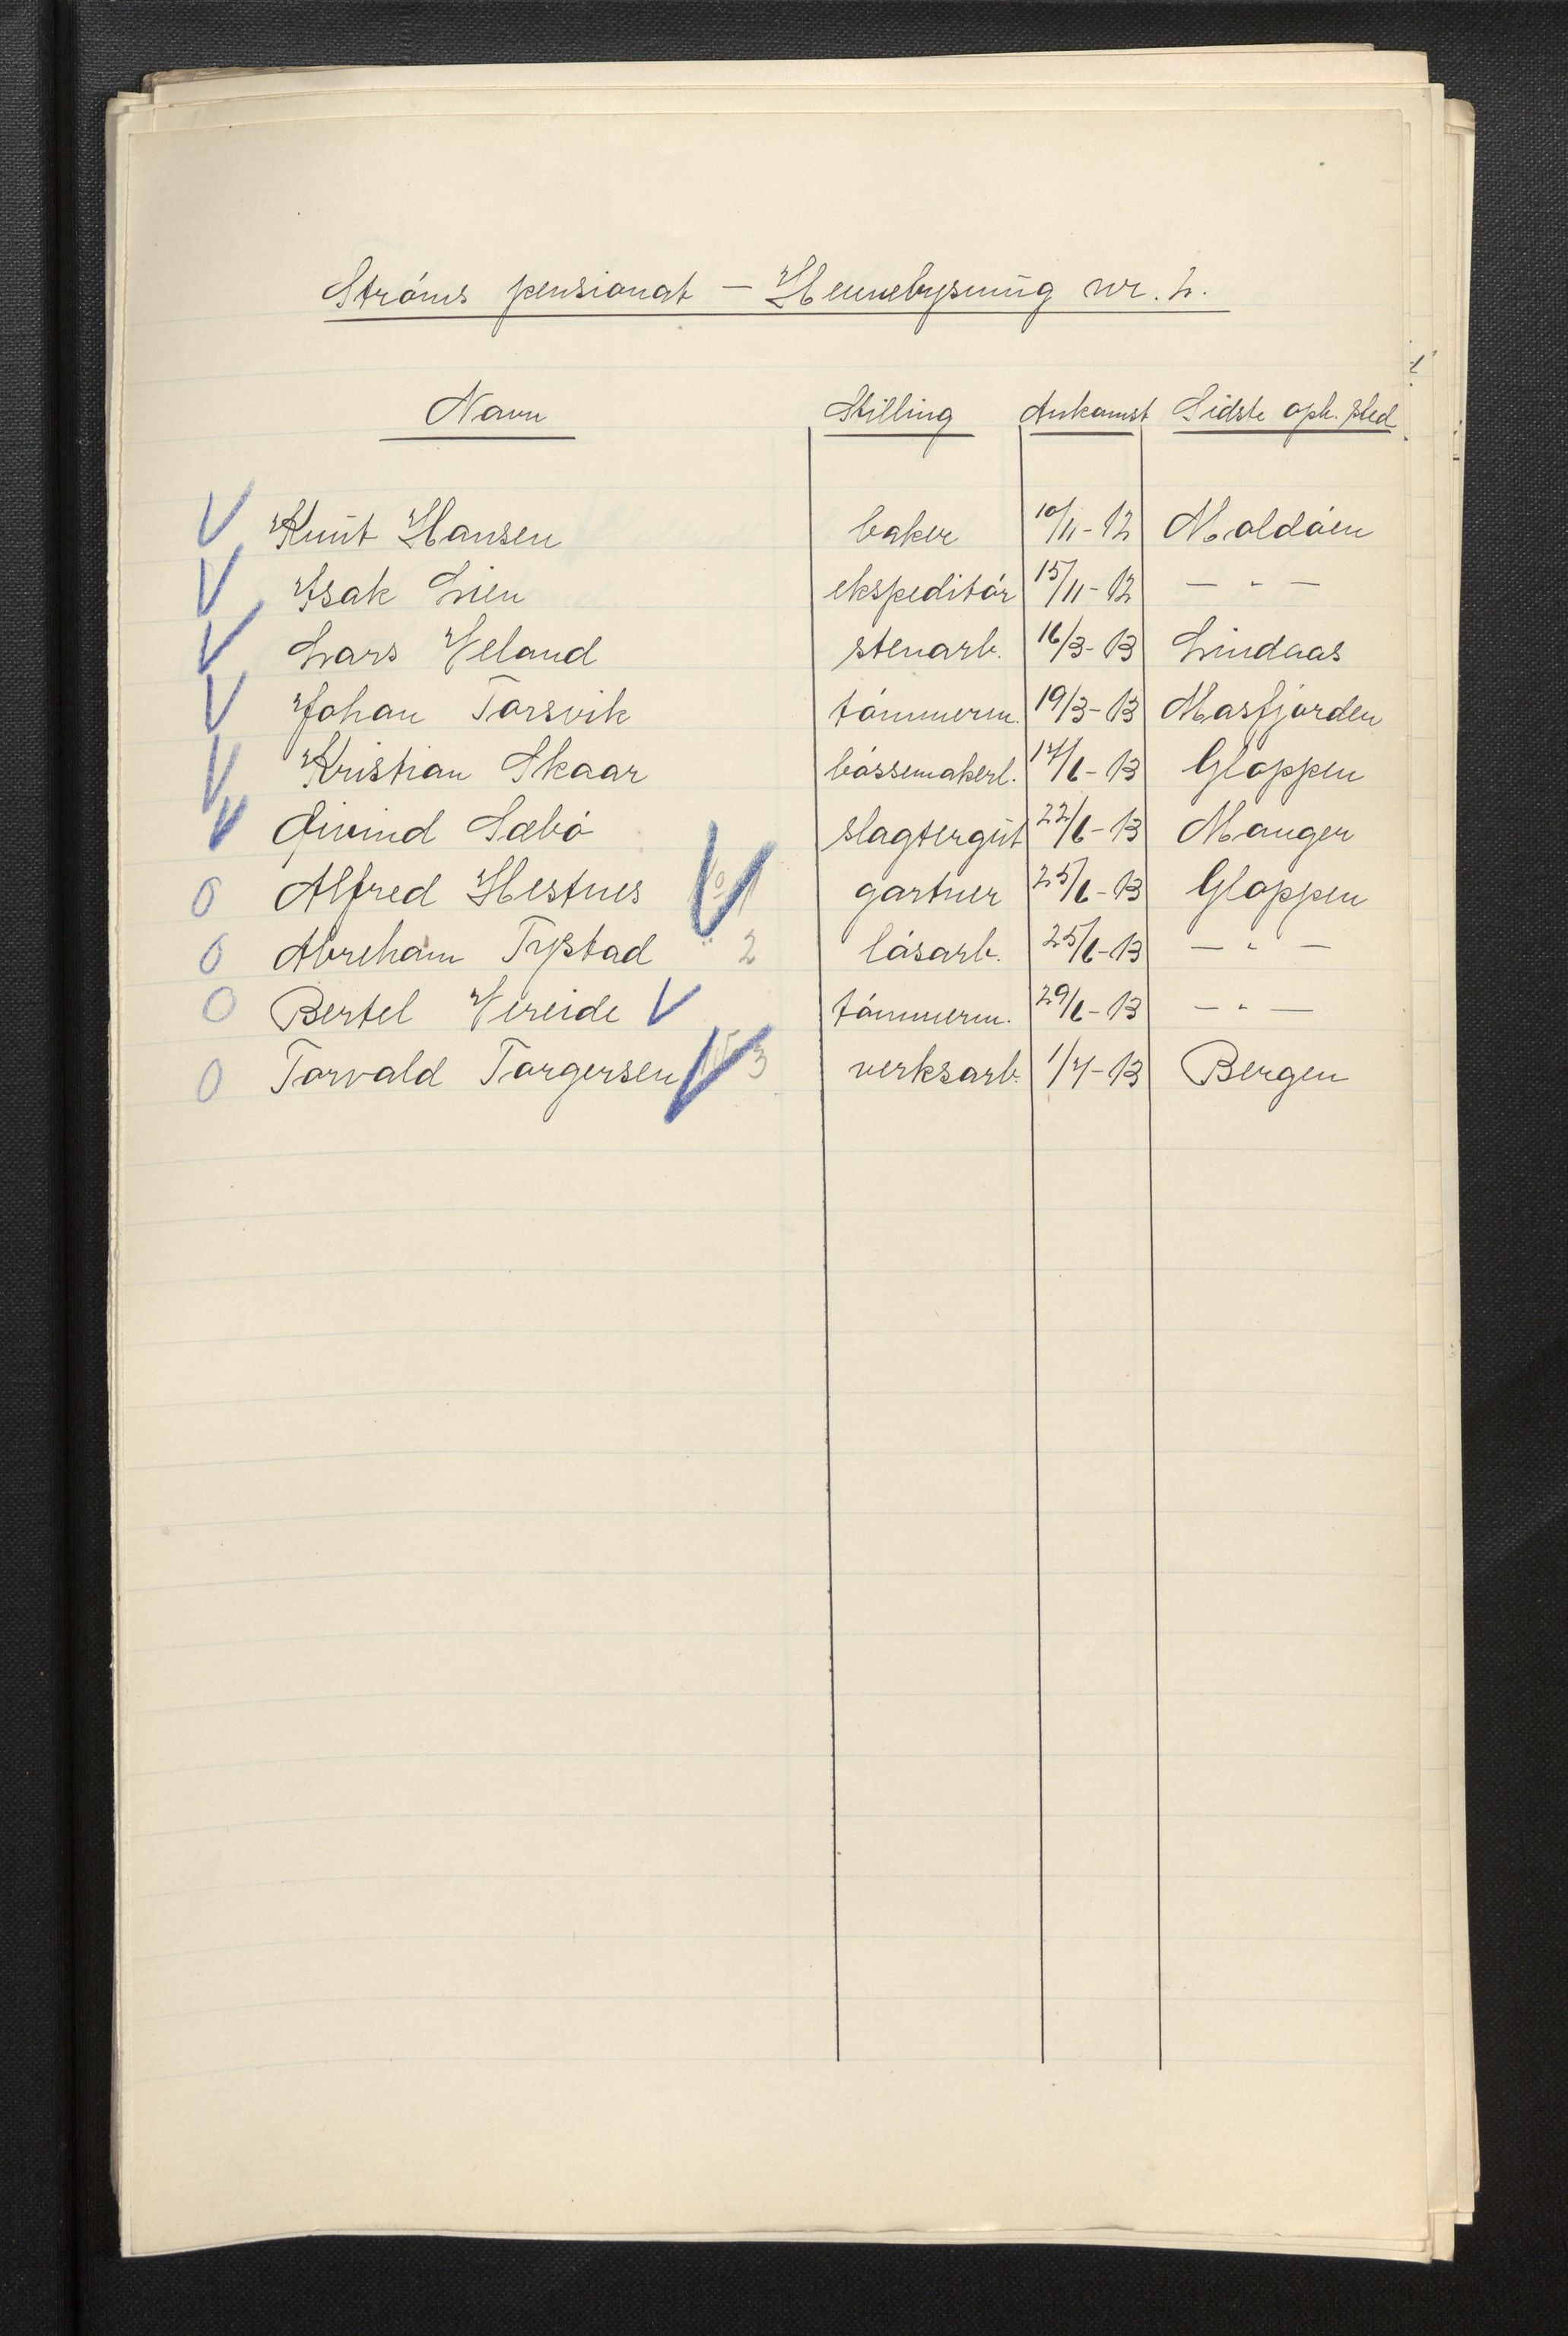 Ströms pensionat — Hennebysmug nr. 2.
Navn Stilling Ankomst Sidste oph. sted
Knut Hansen baker 10/11-12 Moldöen
Isak Lien ekspeditör 15/11-12 — " —
Lars Veland stenarb. 16/3-13 Lindaas
Johan Torsvik tömmerm. 19/3-13 Masfjorden
Kristian Skaar bössemakerl. 17/6-13 Gloppen
Öivind Sæbö slagtergut 22/6-13 Manger
0 Alfred Hestnes 1 gartner 25/6-13 Gloppen
0 Abreham Tystad 2 lösarb. 25/6-13 — " —
0 Bertel Vereide tömmerm. 29/6-13 — " —
0 Torvald Torgersen 3 verksarb. 1/7-13 Bergen